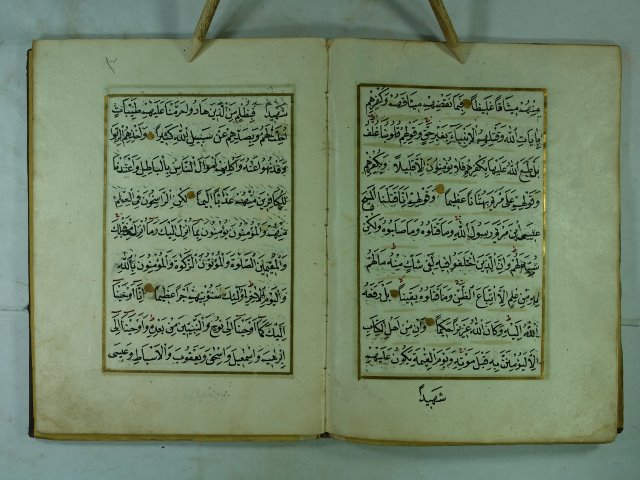 مِنْهُمْ مِيثَاقًا غَلِيظًا فَبِمَا نَقْضِهِمْ مِيثَاقَهُمْ وَكُفْرِهِمْ
بِآيَاتِ اللّٰهِ وَقَتْلِهِمُ الْأَنْبِيَاءَ بِغَيْرِ حَقٍّ وَقَوْلِهِمْ قُلُوبُنَا غُلْفٌ
بَلْ طَبَعَ اللّٰهُ عَلَيْهَا بِكُفْرِهِمْ فَلَا يُؤْمِنُونَ إِلَّا قَلِيلًا وَبِكُفْرِهِمْ
وَقَوْلِهِمْ عَلَى مَرْيَمَ بُهْتَانًا عَظِيمًا وَقَوْلِهِمْ إِنَّا قَتَلْنَا الْمَسِيحَ
عِيسَى بْنَ مَرْيَمَ رَسُولَ اللّٰهِ وَمَا قَتَلُوهُ وَمَا صَلَبُوهُ وَلٰكِنْ
شُبِّهَ لَهُمْ وَإِنَّ الَّذِينَ اخْتَلَفُوا فِيهِ لَفِي شَكٍّ مِنْهُ مَا لَهُمْ
بِهِ مِنْ عِلْمٍ إِلَّا اتِّبَاعَ الظَّنِّ وَمَا قَتَلُوهُ يَقِينًا بَلْ رَفَعَهُ
اللّٰهُ إِلَيْهِ وَكَانَ اللّٰهُ عَزِيزًا حَكِيمًا وَإِنْ مِنْ أَهْلِ الْكِتَابِ
إِلَّا لَيُؤْمِنَنَّ بِهِ قَبْلَ مَوْتِهِ وَيَوْمَ الْقِيٰمَةِ يَكُونُ عَلَيْهِمْ
شَهِيدًا
شَهِيدًا فَبِظُلْمٍ مِنَ الَّذِينَ هَادُوا حَرَّمْنَا عَلَيْهِمْ طَيِّبَاتٍ
أُحِلَّتْ لَهُمْ وَبِصَدِّهِمْ عَنْ سَبِيلِ اللّٰهِ كَثِيرًا وَأَخْذِهِمُ الرِّبٰوا
وَقَدْ نُهُوا عَنْهُ وَأَكْلِهِمْ أَمْوَالَ النَّاسِ بِالْبَاطِلِ وَأَعْتَدْنَا
لِلْكَافِرِينَ مِنْهُمْ عَذَابًا أَلِيمًا لٰكِنِ الرَّاسِخُونَ فِي الْعِلْمِ
مِنْهُمْ وَالْمُؤْمِنُونَ يُؤْمِنُونَ بِمَا أُنْزِلَ إِلَيْكَ وَمَا أُنْزِلَ مِنْ قَبْلِكَ
وَالْمُقِيمِينَ الصَّلٰوةَ وَالْمُؤْتُونَ الزَّكٰوةَ وَالْمُؤْمِنُونَ بِاللّٰهِ
وَالْيَوْمِ الْآخِرِ أُولٰئِكَ سَنُؤْتِيهِمْ أَجْرًا عَظِيمًا إِنَّا أَوْحَيْنَا
إِلَيْكَ كَمَا أَوْحَيْنَا إِلَى نُوحٍ وَالنَّبِيِّينَ مِنْ بَعْدِهِ وَأَوْحَيْنَا إِلَى
إِبْرٰهِيمَ وَإِسْمٰعِيلَ وَإِسْحٰقَ وَيَعْقُوبَ وَالْأَسْبَاطِ وَعِيسَى